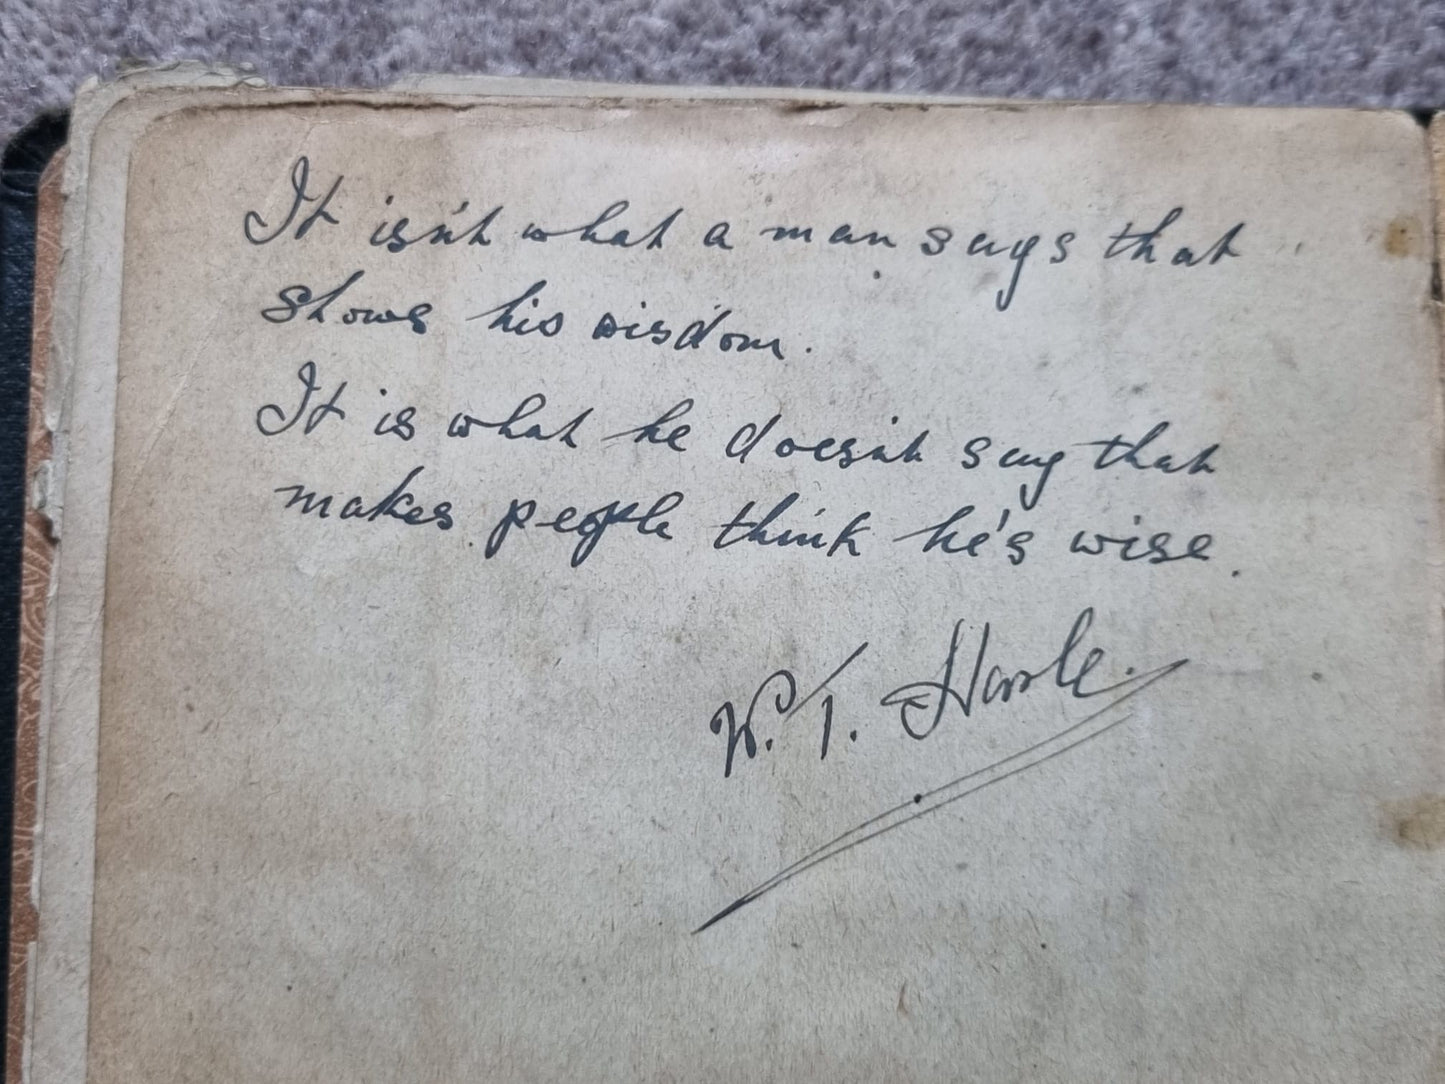 It isn't what a man says that
shows his wisdom.
It is what he doesn't say that
makes people think he's wise.
W. T. Harle.